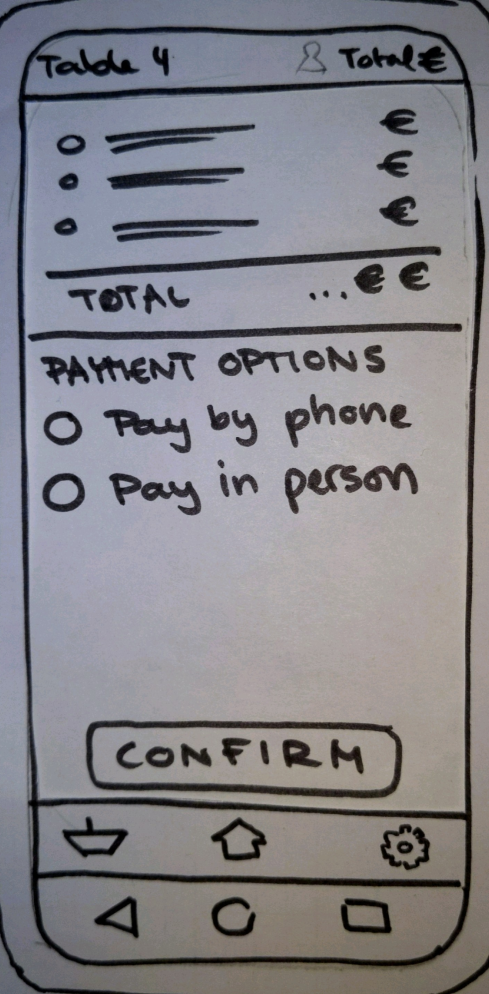 Table 4 Total €
€
€
€
TOTAL ...€ €
PAYMENT OPTIONS
Pay by phone
Pay in person
CONFIRM